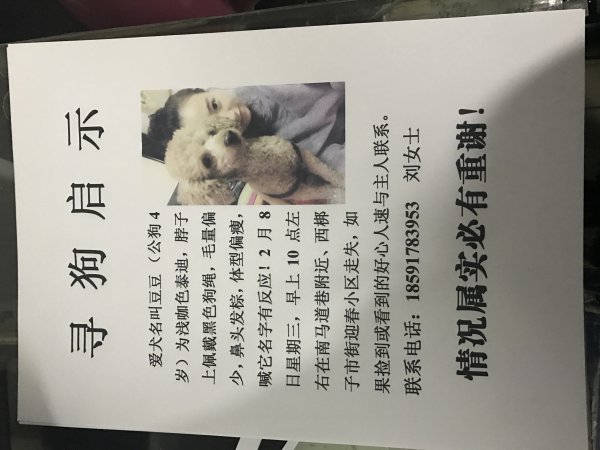 寻狗启示
爱犬名叫豆豆（公狗4
岁）为浅咖色泰迪，脖子
上佩戴黑色狗绳，毛量偏
少，鼻头发棕，体型偏瘦，
喊它名字有反应！2月8
日星期三，早上10点左
右在南马道巷附近、西梆
子市街迎春小区走失，如
果捡到或看到的好心人速与主人联系。
联系电话：18591783953 刘女士
情况属实必有重谢！